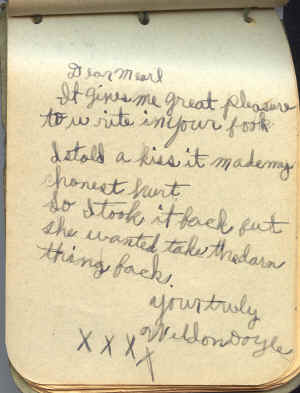 Dear Mearl
It gives me great pleasure
to write in your book
I stold a kiss it made my
honest hurt
So I took it back but
she wanted take the darn
thing back.
yours truly
Weldon Doyle
X X X X